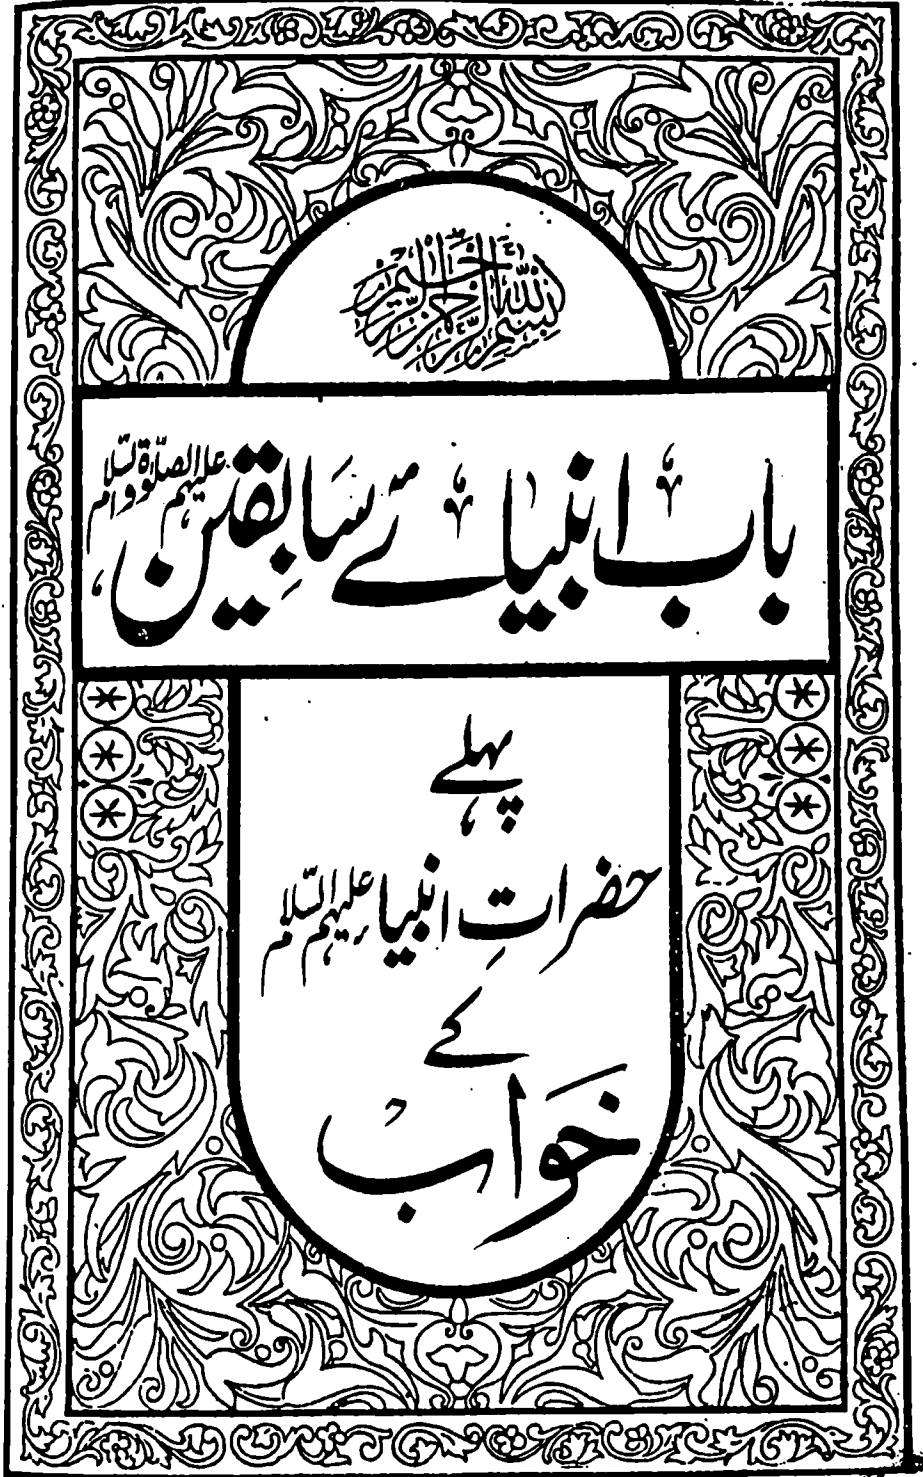 بسم الله الرحمن الرحيم
باب انبیائے سابقین علیہم الصلوٰۃ والسلام
پہلے
حضراتِ انبیاء علیہم السّلام
کے
خَوَاب